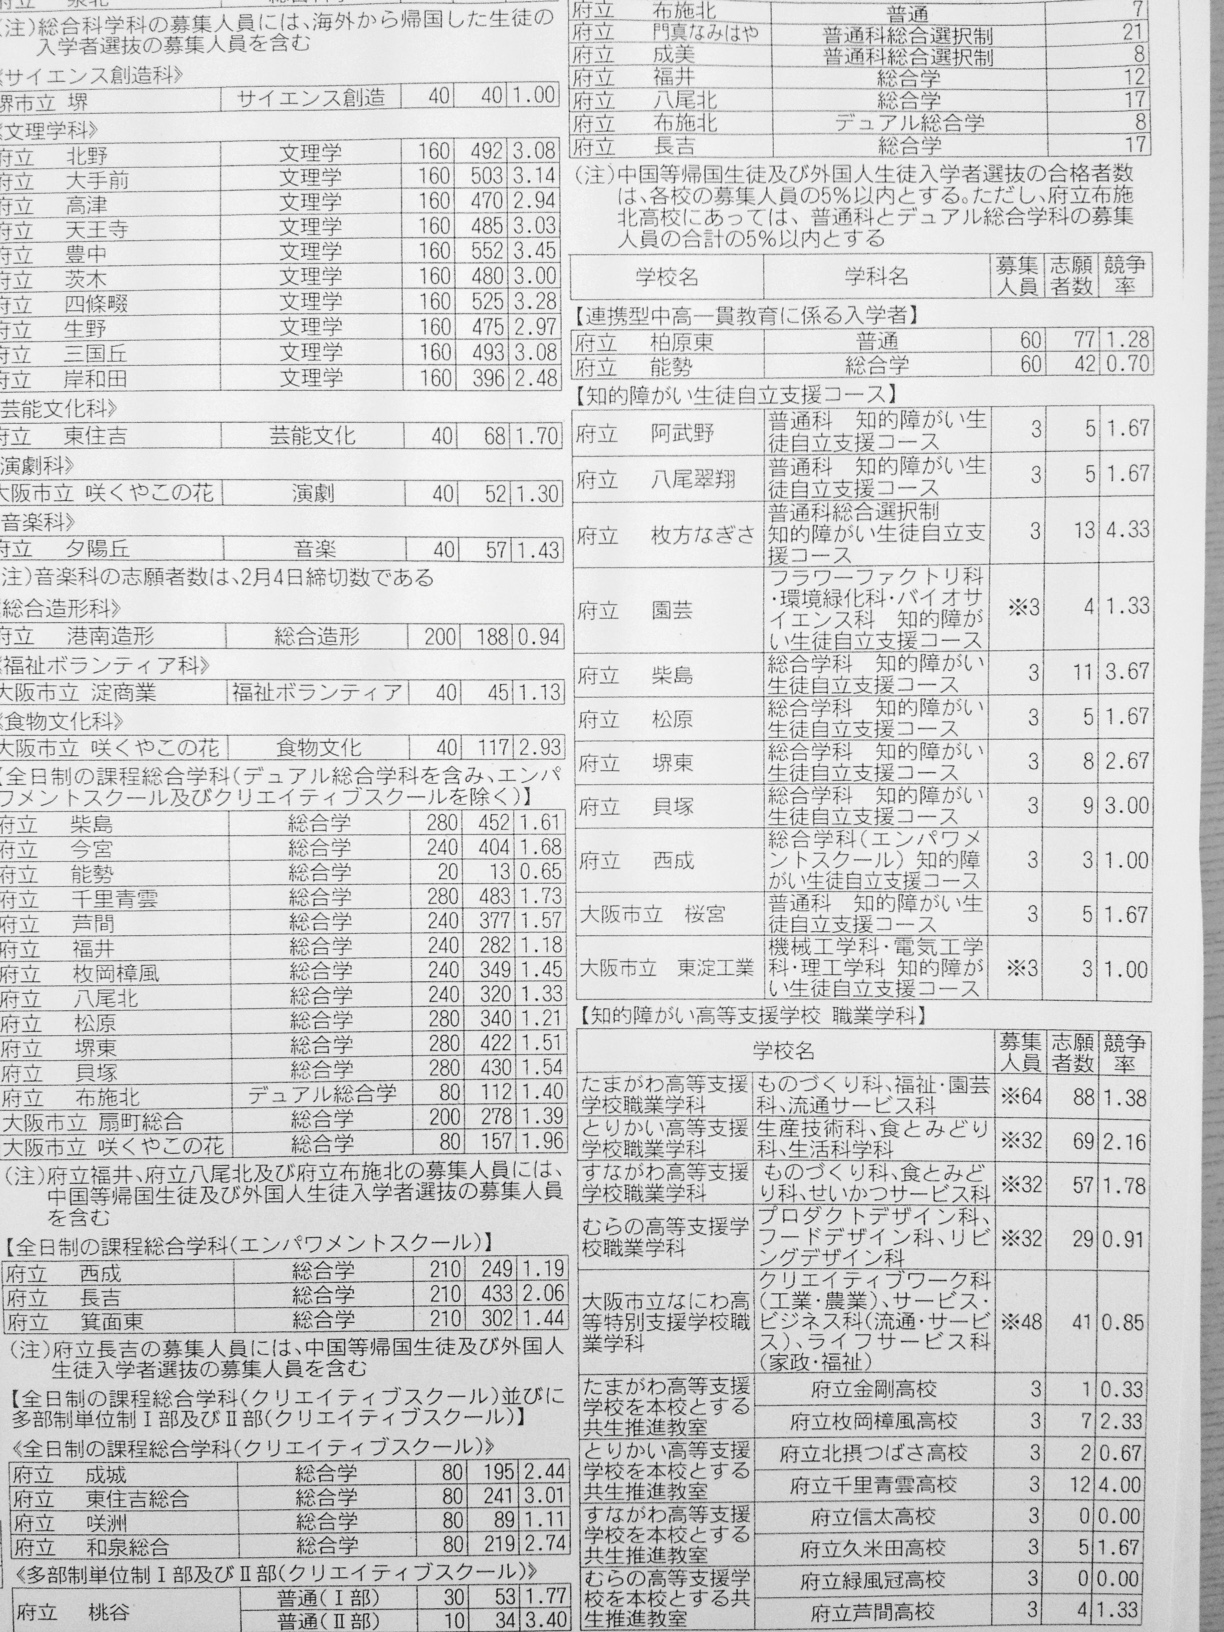 (注)総合科学科の募集人員には、海外から帰国した生徒の
入学者選抜の募集人員を含む
《サイエンス創造科》
堺市立 堺 サイエンス創造 40 40 1.00
《文理学科》
府立 北野 文理学 160 492 3.08
府立 大手前 文理学 160 503 3.14
府立 高津 文理学 160 470 2.94
府立 天王寺 文理学 160 485 3.03
府立 豊中 文理学 160 552 3.45
府立 茨木 文理学 160 480 3.00
府立 四條畷 文理学 160 525 3.28
府立 生野 文理学 160 475 2.97
府立 三国丘 文理学 160 493 3.08
府立 岸和田 文理学 160 396 2.48
芸能文化科》
府立 東住吉 芸能文化 40 68 1.70
演劇科》
大阪市立 咲くやこの花 演劇 40 52 1.30
音楽科》
府立 夕陽丘 音楽 40 57 1.43
注)音楽科の志願者数は、2月4日締切数である
総合造形科》
府立 港南造形 総合造形 200 188 0.94
《福祉ボランティア科》
大阪市立 淀商業 福祉ボランティア 40 45 1.13
《食物文化科》
大阪市立 咲くやこの花 食物文化 40 117 2.93
【全日制の課程総合学科(デュアル総合学科を含み、エンパ
ワメントスクール及びクリエイティブスクールを除く)】
府立 柴島 総合学 280 452 1.61
府立 今宮 総合学 240 404 1.68
府立 能勢 総合学 20 13 0.65
府立 千里青雲 総合学 280 483 1.73
府立 芦間 総合学 240 377 1.57
府立 福井 総合学 240 282 1.18
府立 枚岡樟風 総合学 240 349 1.45
府立 八尾北 総合学 240 320 1.33
府立 松原 総合学 280 340 1.21
府立 堺東 総合学 280 422 1.51
府立 貝塚 総合学 280 430 1.54
府立 布施北 デュアル総合学 80 112 1.40
大阪市立 扇町総合 総合学 200 278 1.39
大阪市立 咲くやこの花 総合学 80 157 1.96
(注)府立福井、府立八尾北及び府立布施北の募集人員には、
中国等帰国生徒及び外国人生徒入学者選抜の募集人員
を含む
【全日制の課程総合学科(エンパワメントスクール)】
府立 西成 総合学 210 249 1.19
府立 長吉 総合学 210 433 2.06
府立 箕面東 総合学 210 302 1.44
(注)府立長吉の募集人員には、中国等帰国生徒及び外国人
生徒入学者選抜の募集人員を含む
【全日制の課程総合学科(クリエイティブスクール)並びに
多部制単位制Ⅰ部及びⅡ部(クリエイティブスクール)】
《全日制の課程総合学科(クリエイティブスクール)》
府立 成城 総合学 80 195 2.44
府立 東住吉総合 総合学 80 241 3.01
府立 咲洲 総合学 80 89 1.11
府立 和泉総合 総合学 80 219 2.74
《多部制単位制Ⅰ部及びⅡ部(クリエイティブスクール)》
府立 桃谷 普通(Ⅰ部) 30 53 1.77
普通(Ⅱ部) 10 34 3.40
府立 布施北 普通 7
府立 門真なみはや 普通科総合選択制 21
府立 成美 普通科総合選択制 8
府立 福井 総合学 12
府立 八尾北 総合学 17
府立 布施北 デュアル総合学 8
府立 長吉 総合学 17
(注)中国等帰国生徒及び外国人生徒入学者選抜の合格者数
は、各校の募集人員の5%以内とする。ただし、府立布施
北高校にあっては、普通科とデュアル総合学科の募集
人員の合計の5%以内とする
学校名 学科名 募集人員 志願者数 競争率
【連携型中高一貫教育に係る入学者】
府立 柏原東 普通 60 77 1.28
府立 能勢 総合学 60 42 0.70
【知的障がい生徒自立支援コース】
府立 阿武野 普通科 知的障がい生
徒自立支援コース 3 5 1.67
府立 八尾翠翔 普通科 知的障がい生
徒自立支援コース 3 5 1.67
府立 枚方なぎさ 普通科総合選択制
知的障がい生徒自立支
援コース 3 13 4.33
府立 園芸 フラワーファクトリ科
・環境緑化科・バイオサ
イエンス科 知的障が
い生徒自立支援コース ※3 4 1.33
府立 柴島 総合学科 知的障がい
生徒自立支援コース 3 11 3.67
府立 松原 総合学科 知的障がい
生徒自立支援コース 3 5 1.67
府立 堺東 総合学科 知的障がい
生徒自立支援コース 3 8 2.67
府立 貝塚 総合学科 知的障がい
生徒自立支援コース 3 9 3.00
府立 西成 総合学科(エンパワメ
ントスクール) 知的障
がい生徒自立支援コース 3 3 1.00
大阪市立 桜宮 普通科 知的障がい生
徒自立支援コース 3 5 1.67
大阪市立 東淀工業 機械工学科・電気工学
科・理工学科 知的障が
い生徒自立支援コース ※3 3 1.00
【知的障がい高等支援学校 職業学科】
学校名 募集人員 志願者数 競争率
たまがわ高等支援 ものづくり科、福祉・園芸
学校職業学科 科、流通サービス科 ※64 88 1.38
とりかい高等支援 生産技術科、食とみどり
学校職業学科 科、生活科学科 ※32 69 2.16
すながわ高等支援 ものづくり科、食とみど
学校職業学科 り科、せいかつサービス科 ※32 57 1.78
むらの高等支援学 プロダクトデザイン科、
校職業学科 フードデザイン科、リビ
ングデザイン科 ※32 29 0.91
大阪市立なにわ高 クリエイティブワーク科
等特別支援学校職 (工業・農業)、サービス・
業学科 ビジネス科(流通・サービ
ス)、ライフサービス科
(家政・福祉) ※48 41 0.85
たまがわ高等支援 府立金剛高校 3 1 0.33
学校を本校とする
共生推進教室 府立枚岡樟風高校 3 7 2.33
とりかい高等支援 府立北摂つばさ高校 3 2 0.67
学校を本校とする
共生推進教室 府立千里青雲高校 3 12 4.00
すながわ高等支援 府立信太高校 3 0 0.00
学校を本校とする
共生推進教室 府立久米田高校 3 5 1.67
むらの高等支援学 府立緑風冠高校 3 0 0.00
校を本校とする共
生推進教室 府立芦間高校 3 4 1.33